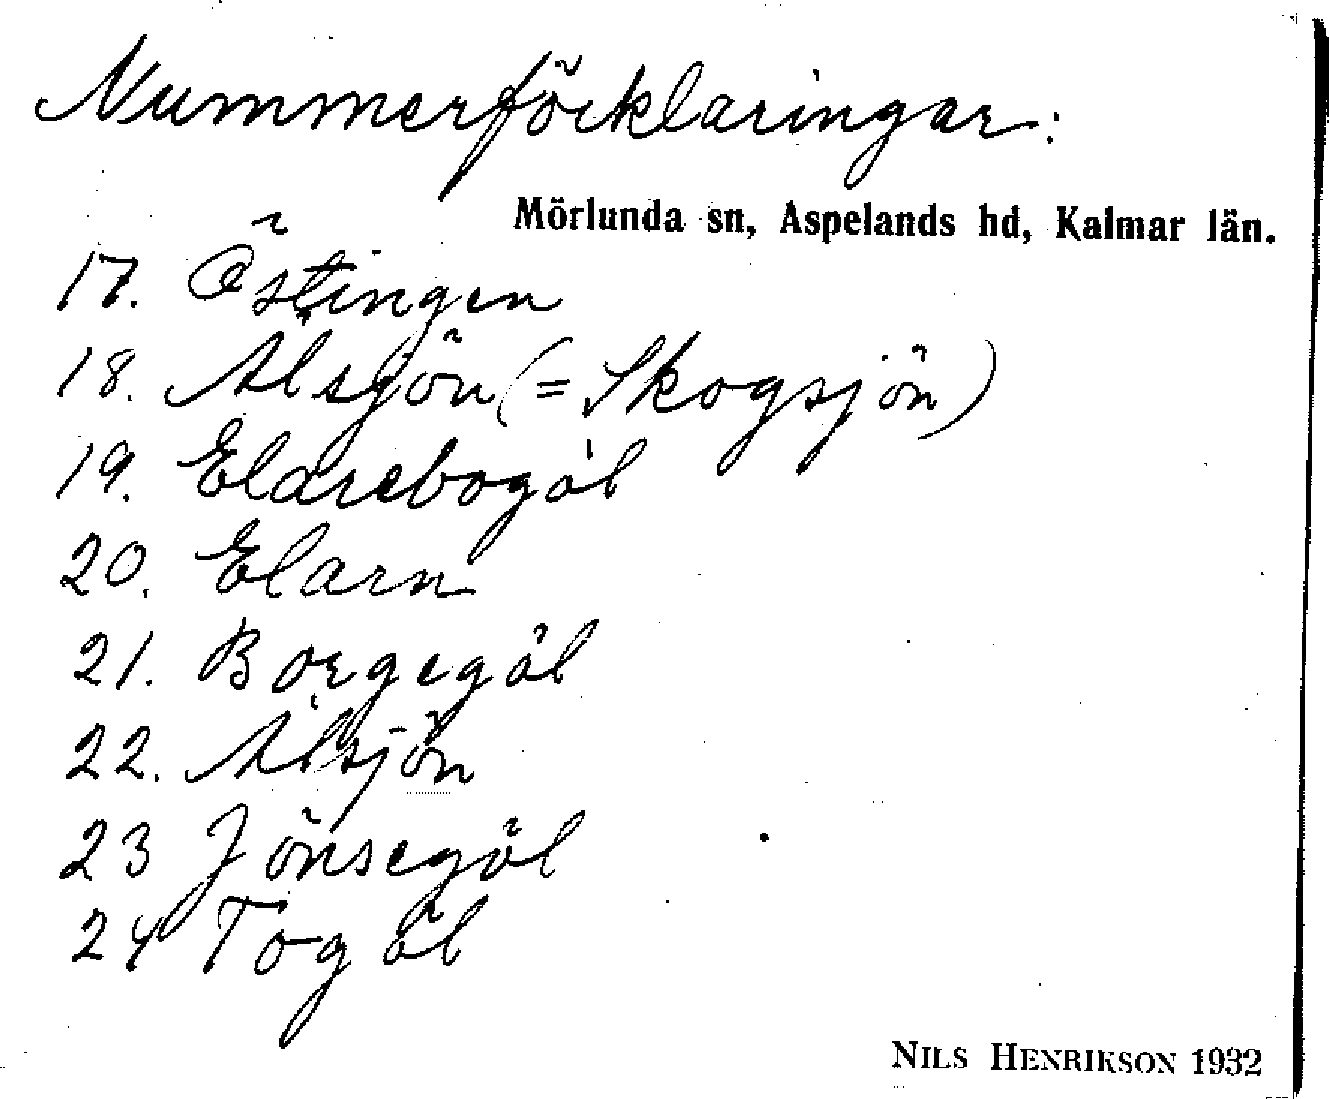 Nummerförklaringar:
Mörlunda sn, Aspelands hd, Kalmar län.
17. Östingen
18. Alsjön (= Skogsjön)
19. Elarebogöl
20. Elarn
21. Borgegöl
22. Ålsjön
23 Jönsegöl
24 Togöl
NILS HENRIKSON 1932